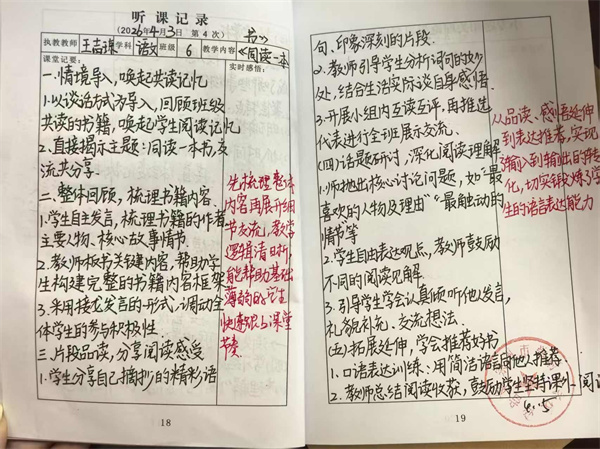 听课记录
(2026年4月3日 第4次)
执教教师 学科 语文 班级 6 教学内容 《阅读一本
书》
课堂记要:
实时感悟:
一.情境导入,唤起共读记忆
1.以谈话方式为导入,回顾班级
共读的书籍,唤起学生阅读记忆
2.直接揭示主题:同读一本书,交
流共分享.
二.整体回顾,梳理书籍内容.
1.学生自主发言,梳理书籍的作者
主要人物、核心故事情节.
2.教师板书关键内容,帮助学
生构建完整的书籍内容框架
3.采用接龙发言的形式,调动全
体学生的参与积极性.
三.片段品读,分享阅读感受
1.学生分享自己摘抄的精彩语
先梳理整体
内容再展开细
节交流,教学
逻辑清晰,
能帮助基础
薄弱的学生
快速跟上课堂
节奏.
18
句、印象深刻的片段.
2.教师引导学生分析词句的妙
处,结合生活实际谈自身感悟.
3.开展小组内互读互评,再推选
代表进行全班展示交流.
(四)话题研讨,深化阅读理解
1.师抛出核心讨论问题,如"最
喜欢的人物及理由""最触动的
情节等
2.学生自由表达观点,教师鼓励
不同的阅读见解.
3.引导学生学会认真倾听他人发言,
礼貌补充、交流想法.
(五)拓展延伸,学会推荐好书
1.口语表达训练:用简洁语言向他人推荐
2.教师总结阅读收获,鼓励学生坚持课外阅读
从品读、感悟延伸
到表达推荐,实现
输入到输出的转
化,切实锻炼了学
生的语言表达能力
4.5
19